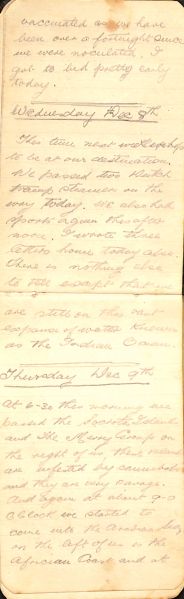 vaccinated as we have
been over a fortnight since
we were noculated. I
got to bed pretty early
today.
Wednesday Dec 8th
This time next week we hope
to be at our destination.
We passed two Dutch
tramp steamers on the
way today. We also had
sports again this after
noon. I wrote three
letters home today also.
There is nothing else
to tell except that we
are still on this vast
expanse of water known
as the Indian Ocean.
Thursday Dec 9th
At 6-30 this morning we
passed the Socotra Island
and the Group on
the right of us, these islands
are infested by cannibals
and they are very savage.
And again at about 9-0
O'clock we started to
come into the Arabian Sea,
on the left of us is the
African Coast and at